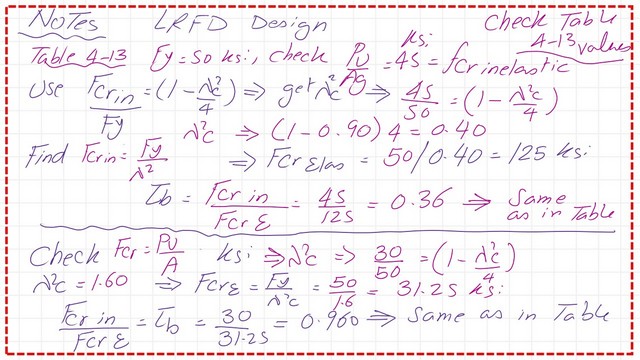 Notes LRFD Design Check Table
4-13 values
Table 4-13 Fy = 50 ksi, check Pu/Ag = 45 ksi = fcr inelastic
Use Fcr in/Fy = (1 - λ²c/4) ⇒ get λ²c ⇒ 45/50 = (1 - λ²c/4)
λ²c ⇒ (1 - 0.90) 4 = 0.40
Find Fcrin = Fy/λ² ⇒ Fcr Elas = 50/0.40 = 125 ksi
τb = Fcr in/Fcr E = 45/125 = 0.36 ⇒ Same as in Table
Check Fcr = Pu/A ksi ⇒ λ²c ⇒ 30/50 = (1 - λ²c/4)
λ²c = 1.60 ⇒ FcrE = Fy/λ²c = 50/1.6 = 31.25 ksi
Fcr in/Fcr E = τb = 30/31.25 = 0.960 ⇒ Same as in Table